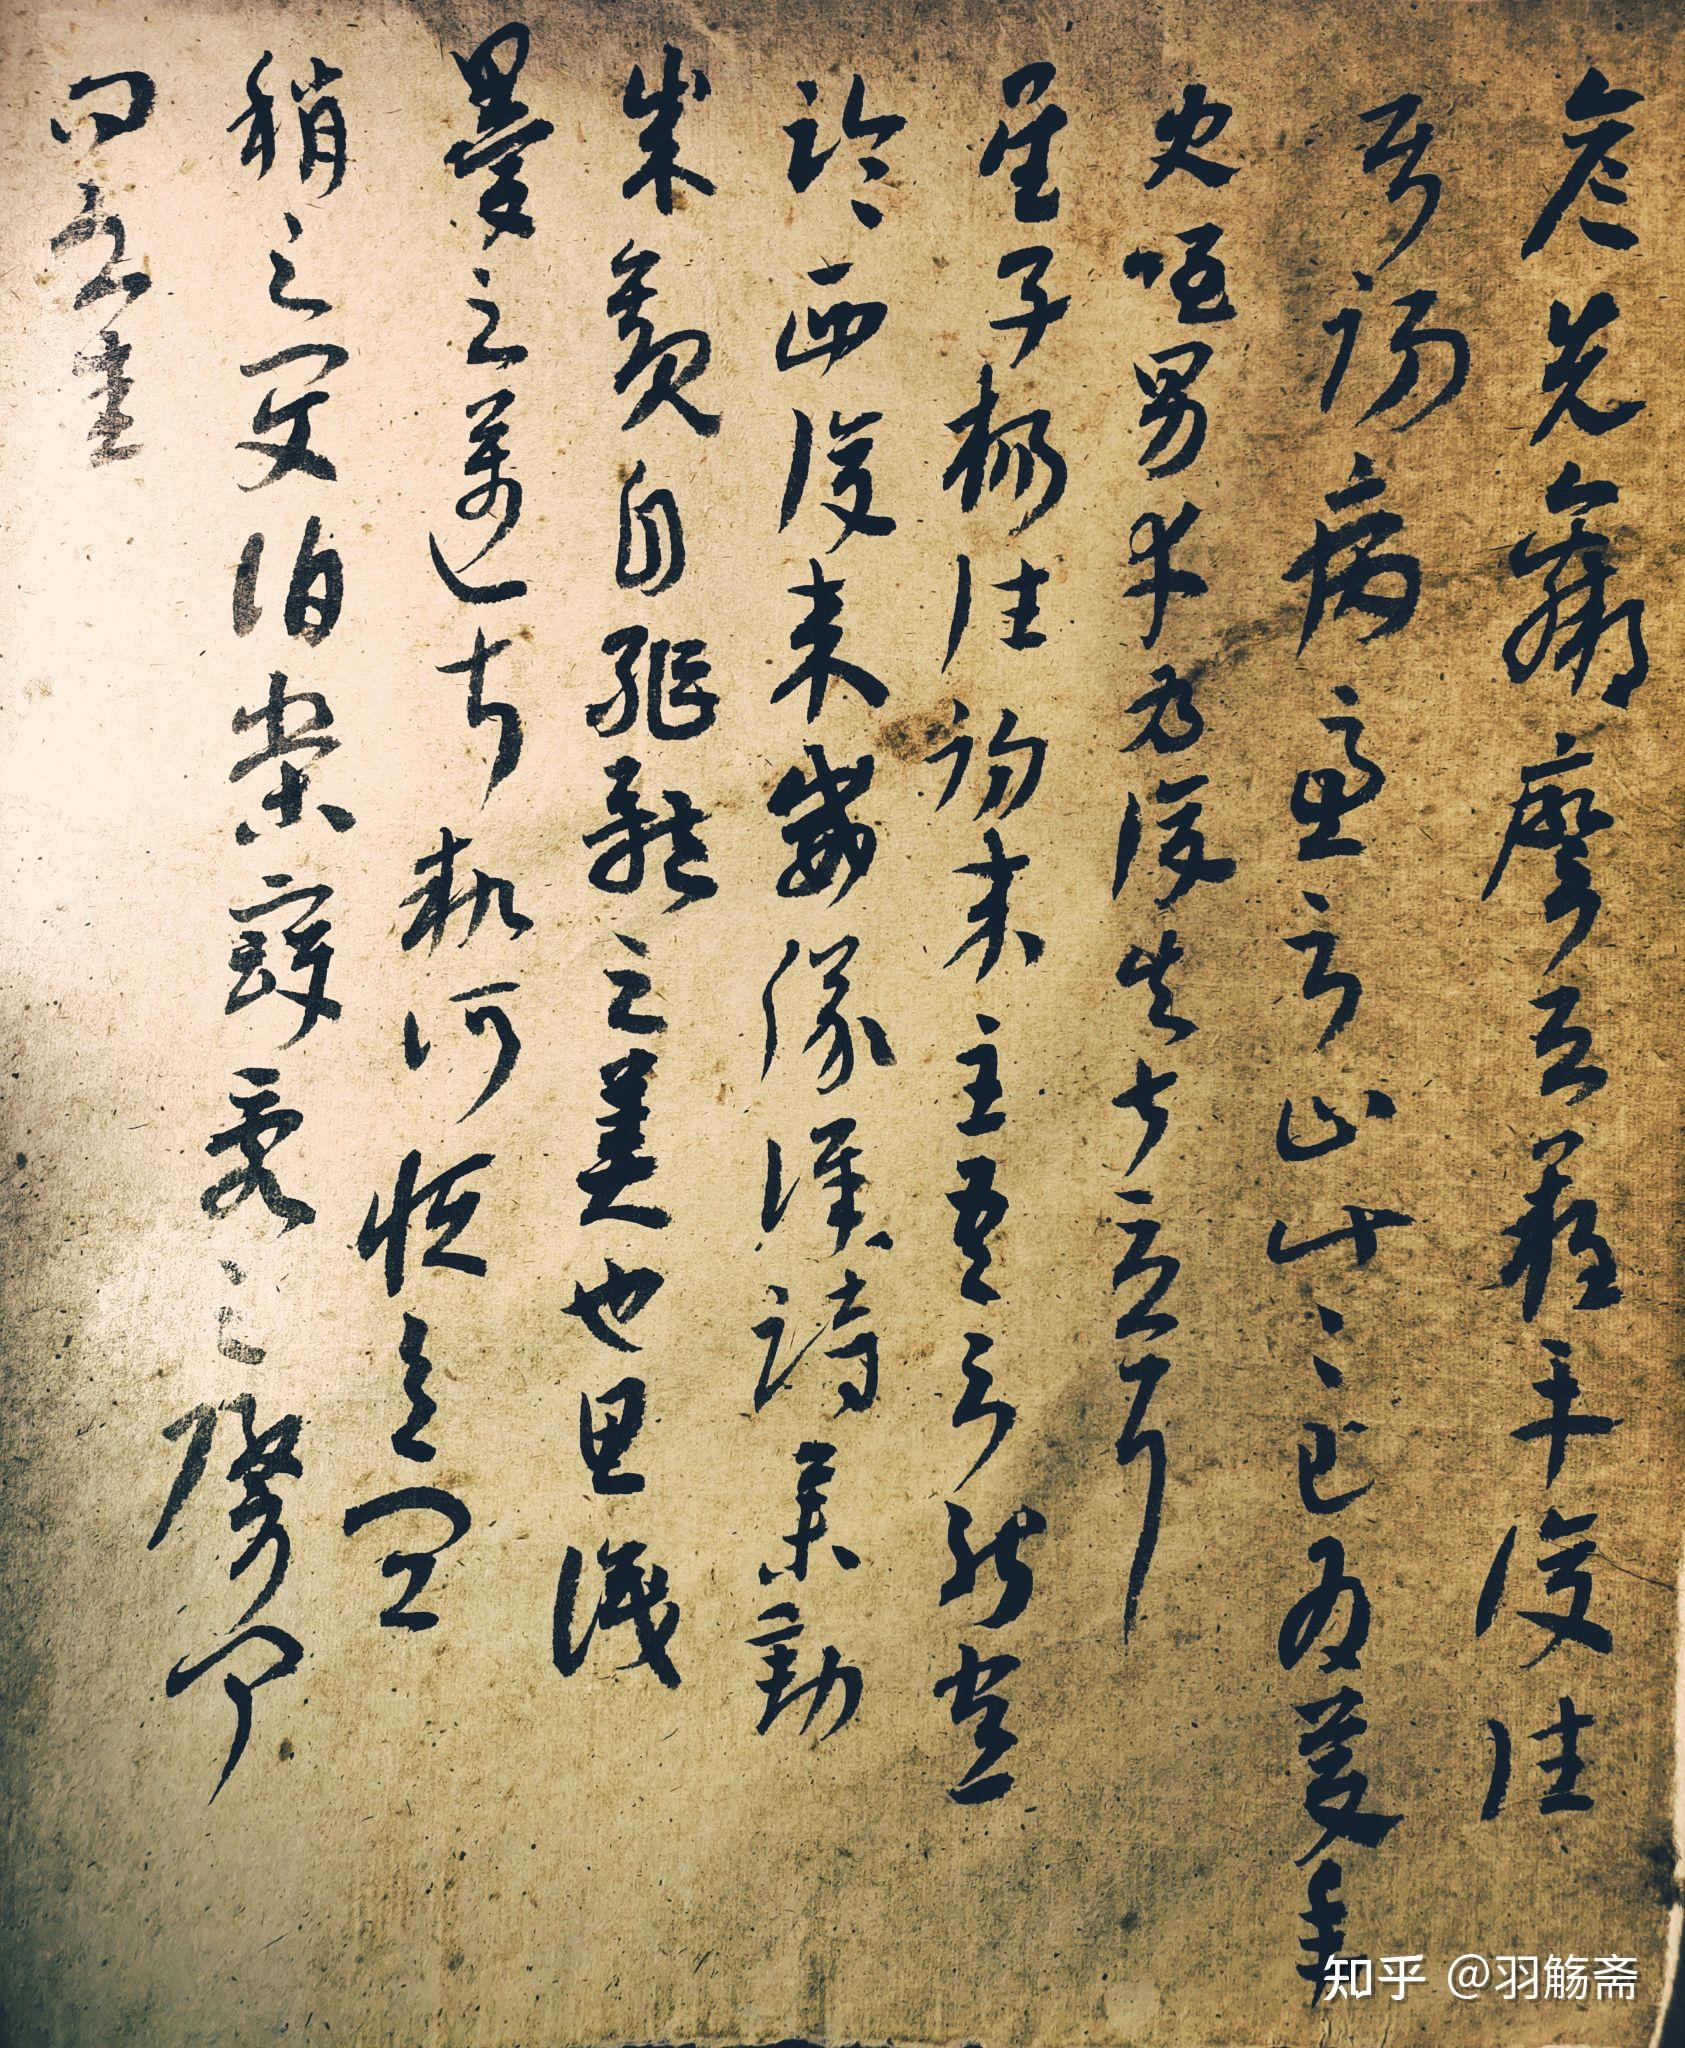 彦先羸瘵恐難平復往
屬初病慮不止此此已為慶承
使唯男幸為復失前憂耳
吳子楊往初來主吾不能盡
臨西復來威儀詳跱舉動
成觀自軀體之美也思識
量之邁前執所恒有宜
稱之夏伯榮寇亂之際聞
問不悉
知乎 @羽觞斋